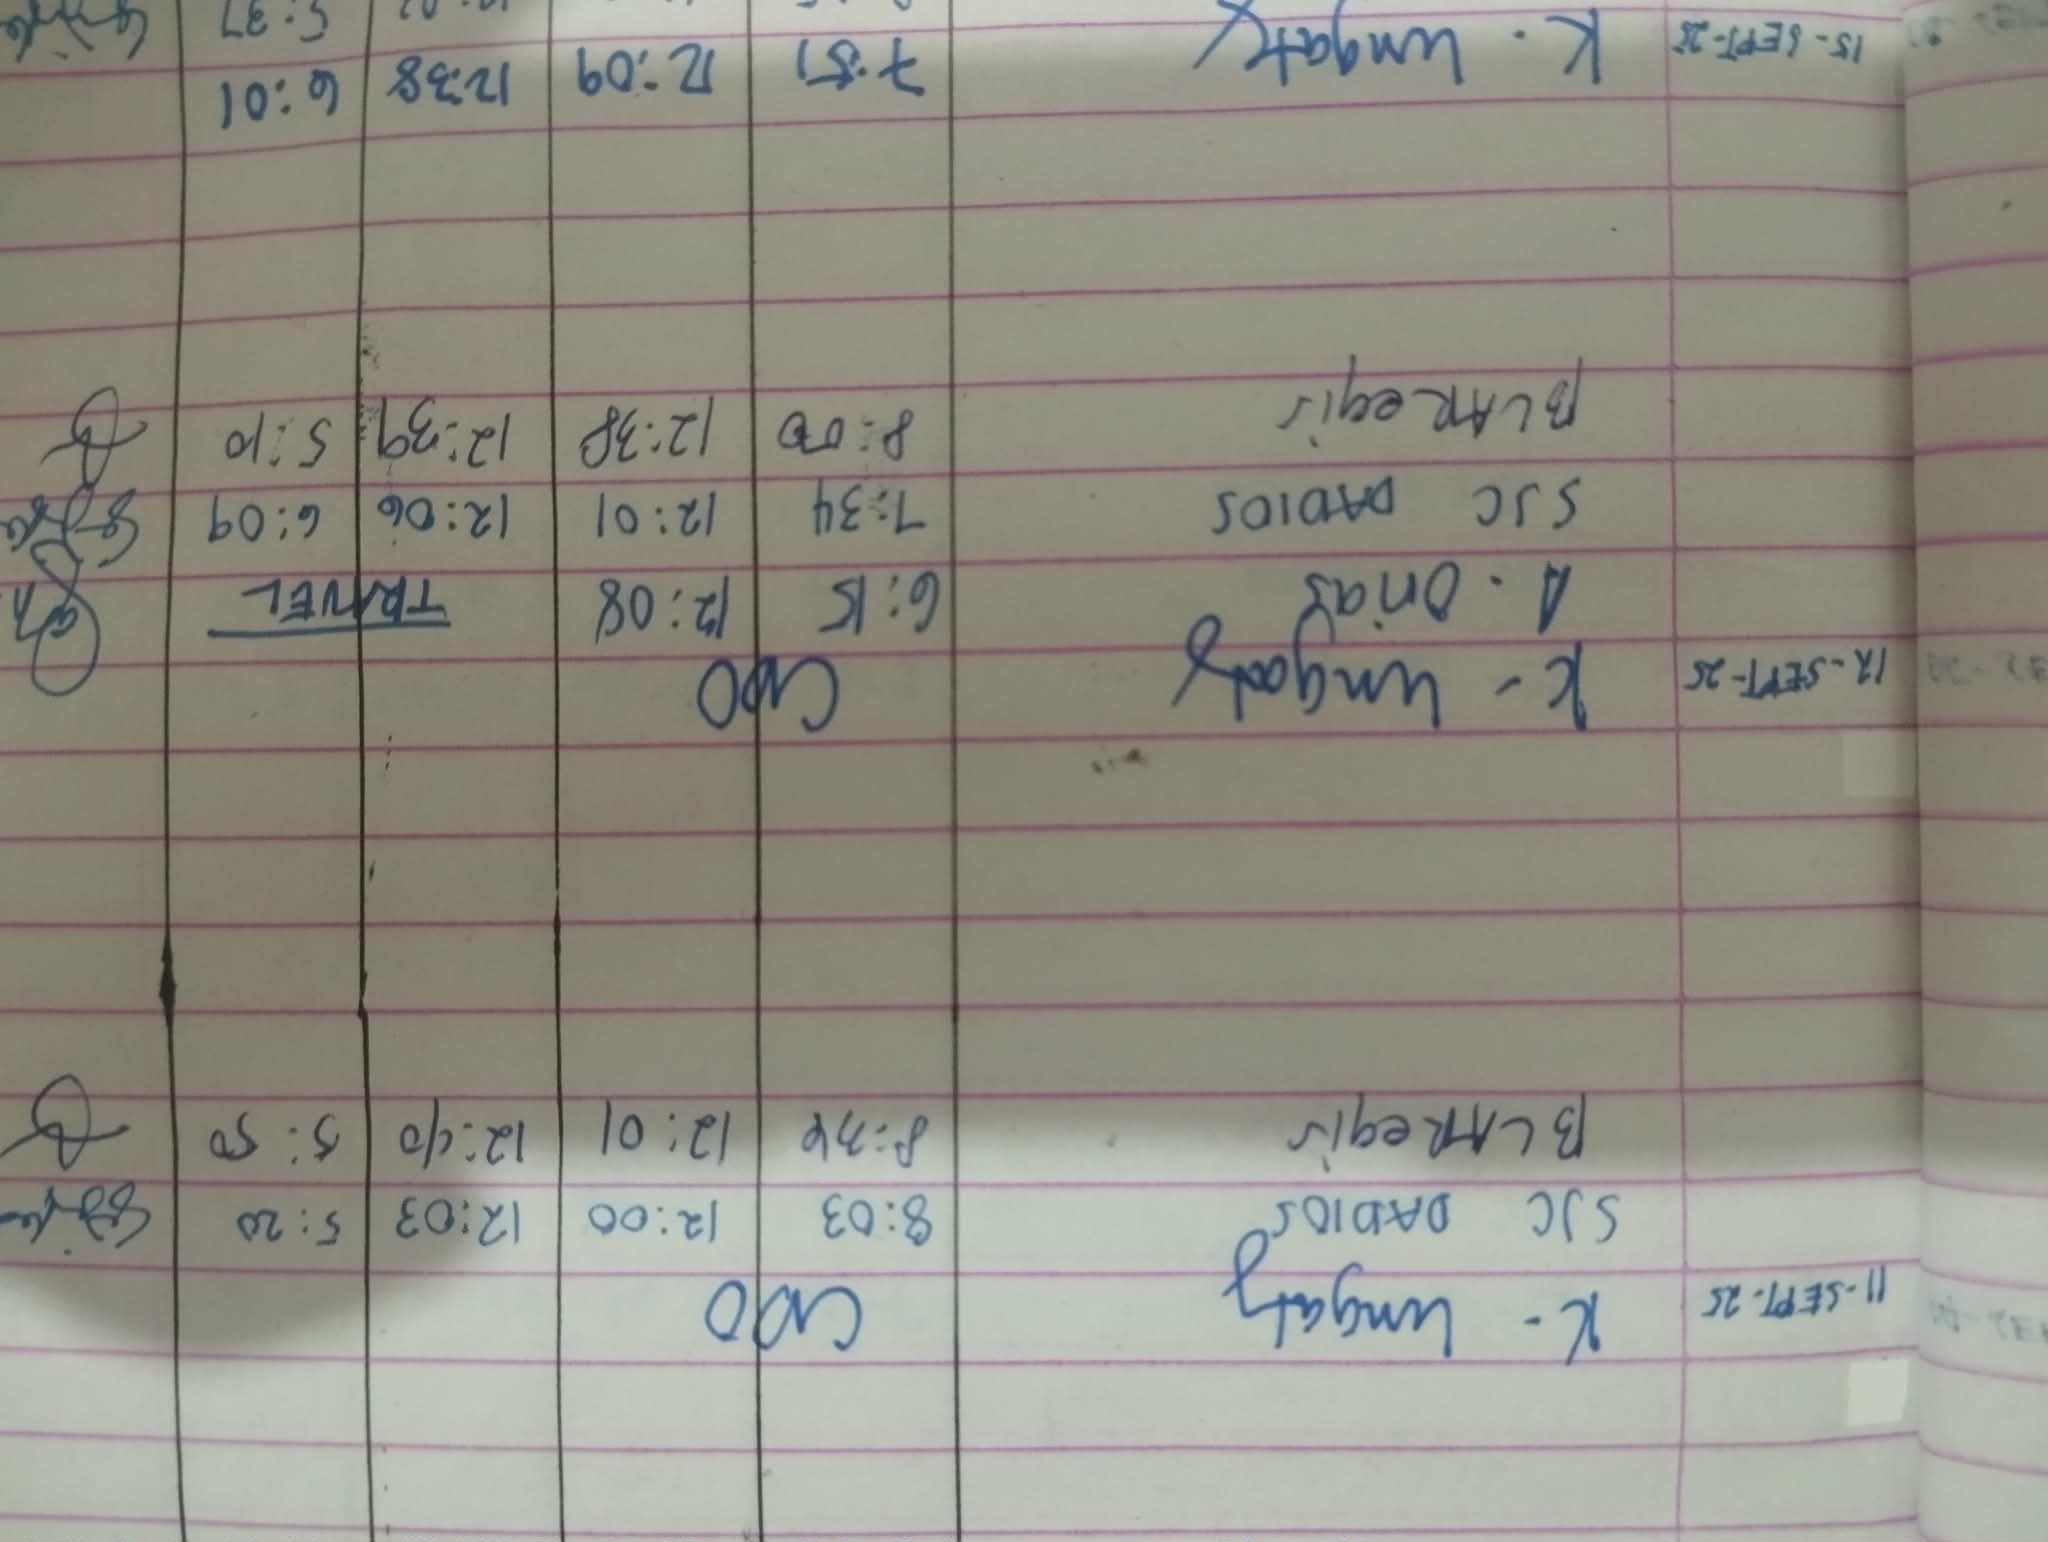 11-SEPT-25 K- Ungaty CDO
SJC DADIOS 8:03 12:00 12:03 5:20
BLAREGIS 8:34 12:01 12:40 5:50
12-SEPT-25 K- Ungaty CDO
A. Orias 6:15 12:08 TRAVEL
SJC DADIOS 7:34 12:01 12:06 6:09
BLAREGIS 8:00 12:38 12:39 5:10
15-SEPT-25 K. Ungaty 7:51 12:09 12:38 6:01
5:37